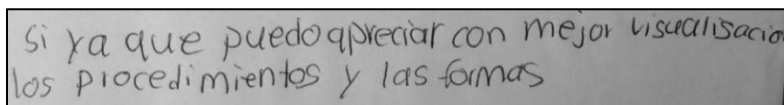 si ya que puedo apreciar con mejor visualisacio
los procedimientos y las formas